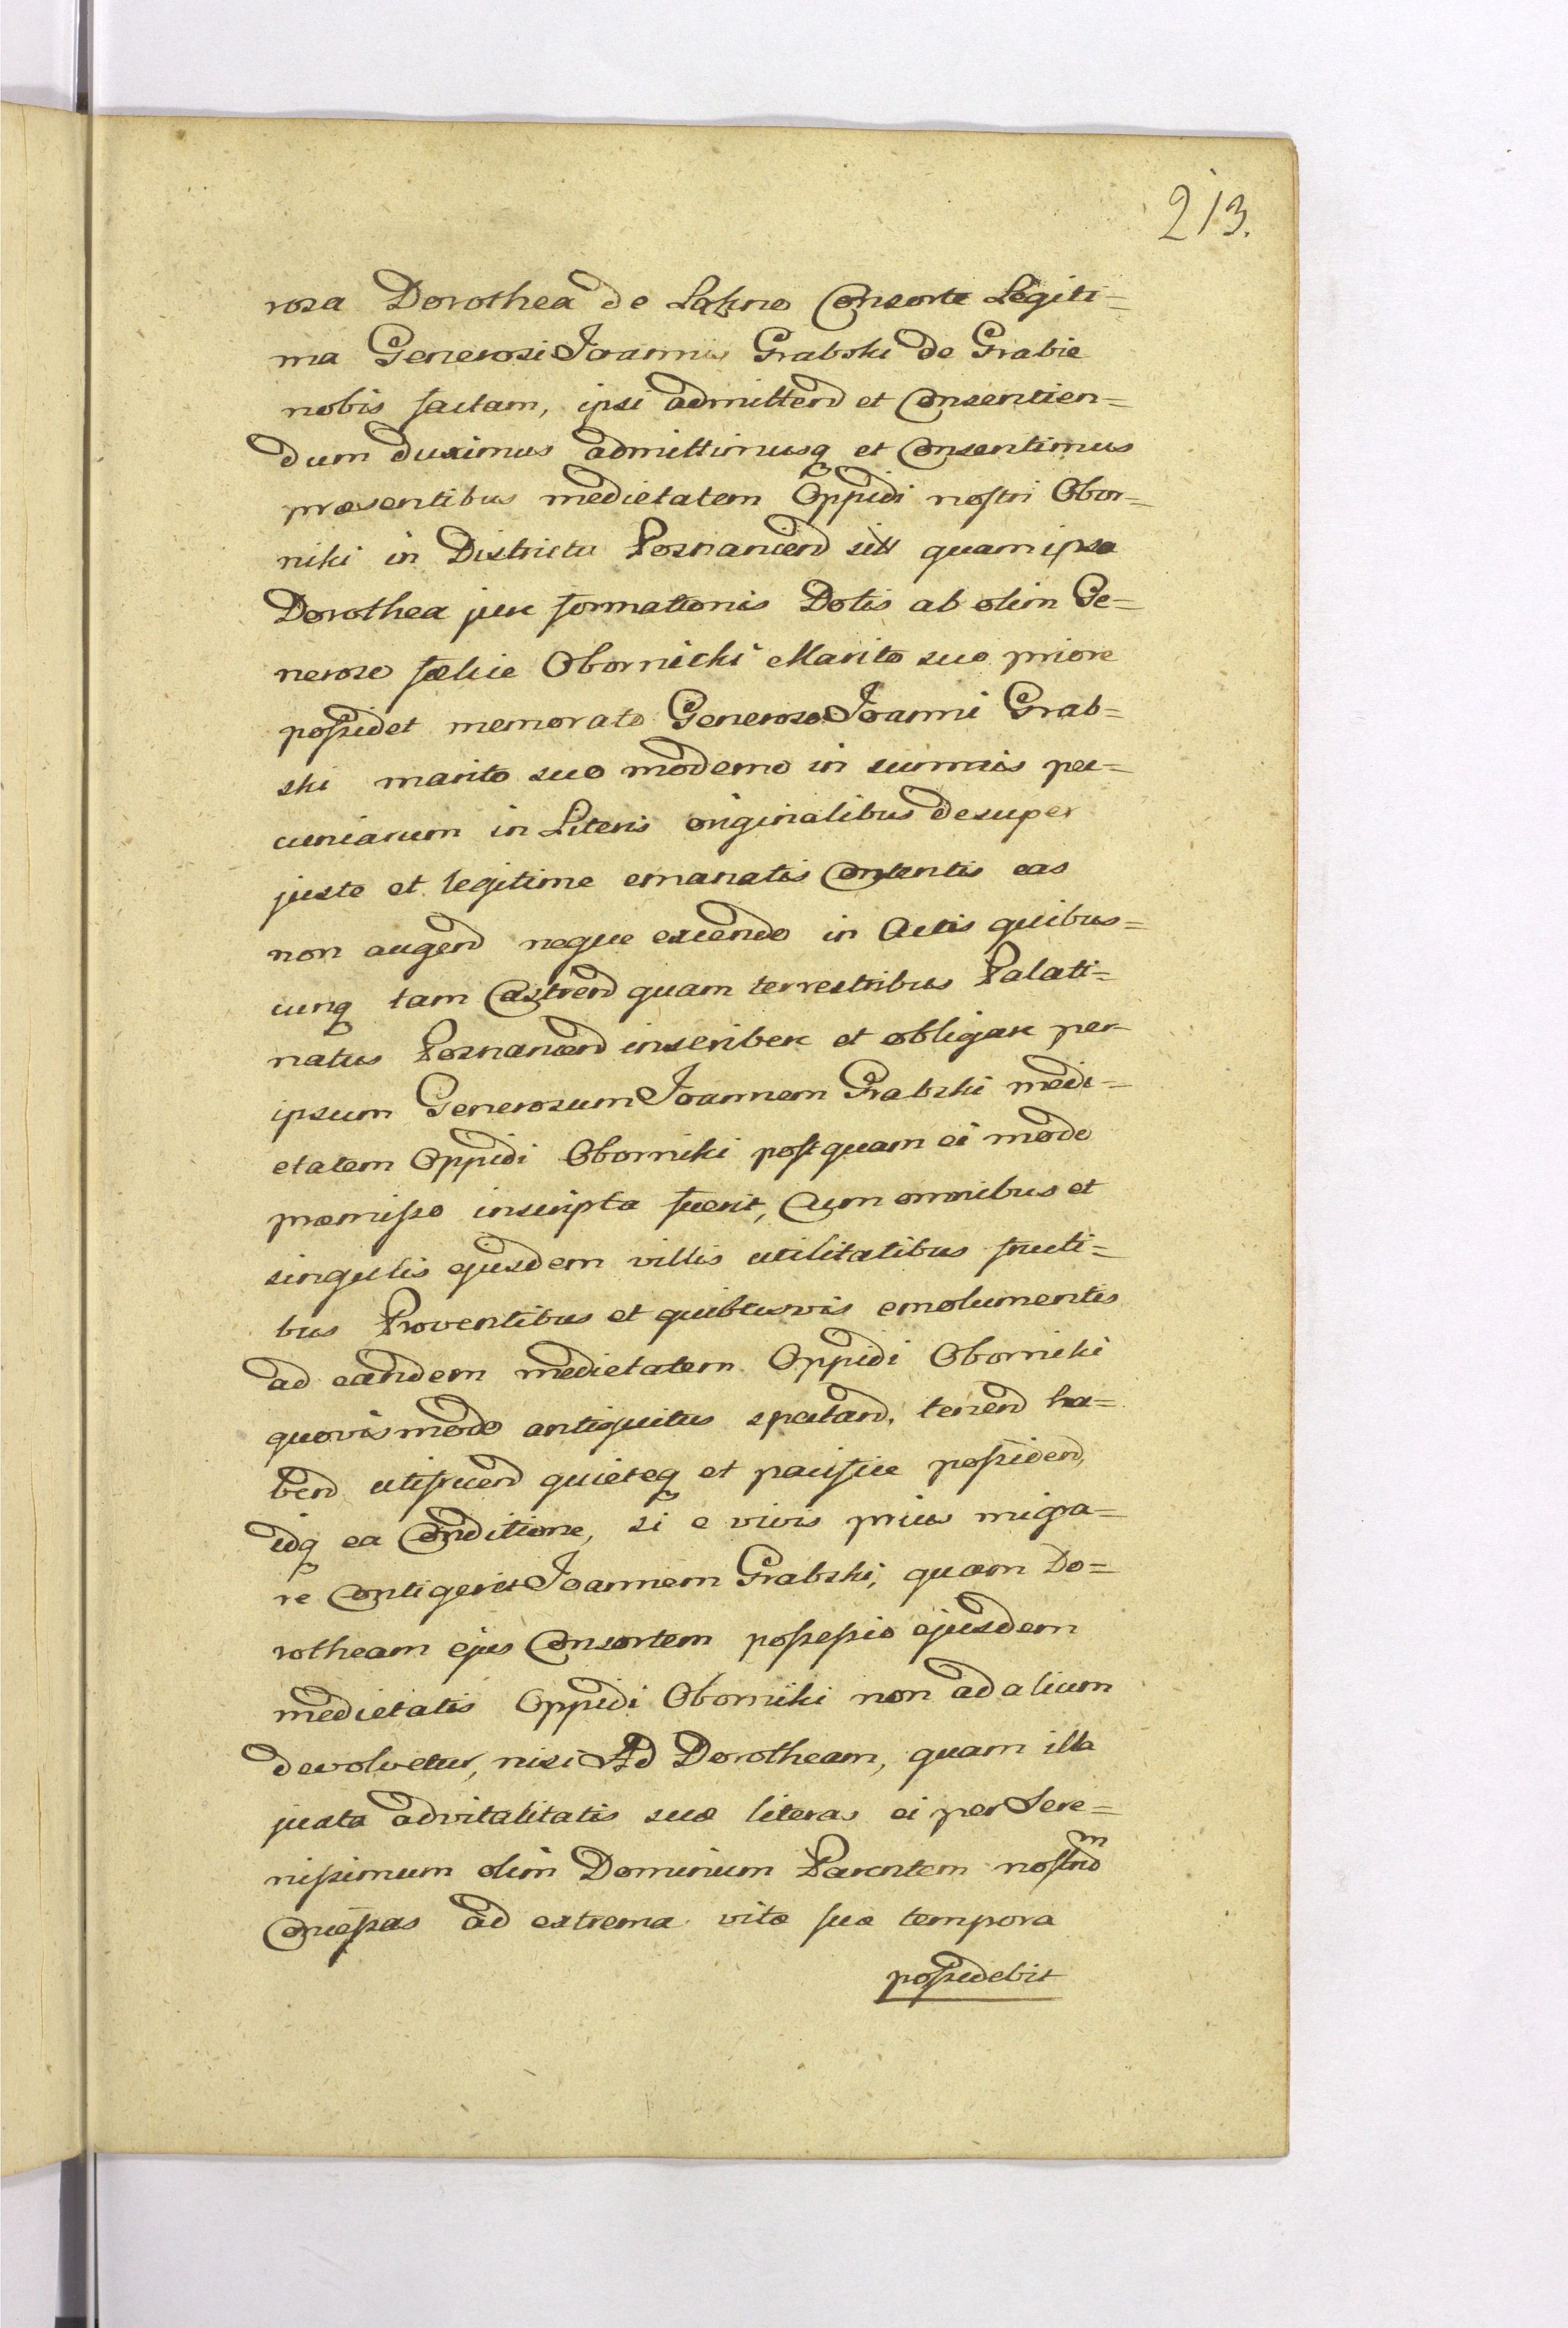 213.
rosa Dorothea de Consorte Legiti=
ma Generosi Joannis Grabski de Grabie
nobis factam, ipsi admittend et Consentien=
dum duximus admittimusq et Consentimus
præsentibus medietatem Oppidi nostri Obor=
niki in Districtu Posnaniend sitt quam ipsa
Dorothea jure formationis Dotis ab olim Ge=
neroso fælice Obornicki Marito suo priore
possidet memorato Generoso Joanni Grab=
ski marito suo moderno in summis pec=
uniarum in Literis originalibus desuper
juste et legitime emanatis Contentis eas
non augend neque excendo in Actis quibus=
cunq tam Castrend quam terrestribus Palati=
natus Posnaniend inscribere et obligare per
ipsum Generosum Joannem Grabski medi=
etatem Oppidi Oborniki postquam ei modo
præmisso inscripta fuerit, Cum omnibus et
singulis ejusdem villis utilitatibus fructi=
bus Proventibus et quibusvis emolumentis
ad eandem medietatem Oppidi Oborniki
quovis modo antiquitus spectand, tenend ha=
bend utifruend quieteq et pacifice possidend,
idq ea Conditione, si e vivis prius migra=
re Contigerit Joannem Grabski, quam Do=
rotheam ejus Consortem possessio ejusdem
medietatis Oppidi Oborniki non ad alium
devolvetur, nisi Ad Dorotheam, quam illa
juxta advitalitatis suæ literas ei per Sere=
nissimum olim Dominum Parentem nostrum
Concessas ad extrema vitæ suæ tempora
possidebit